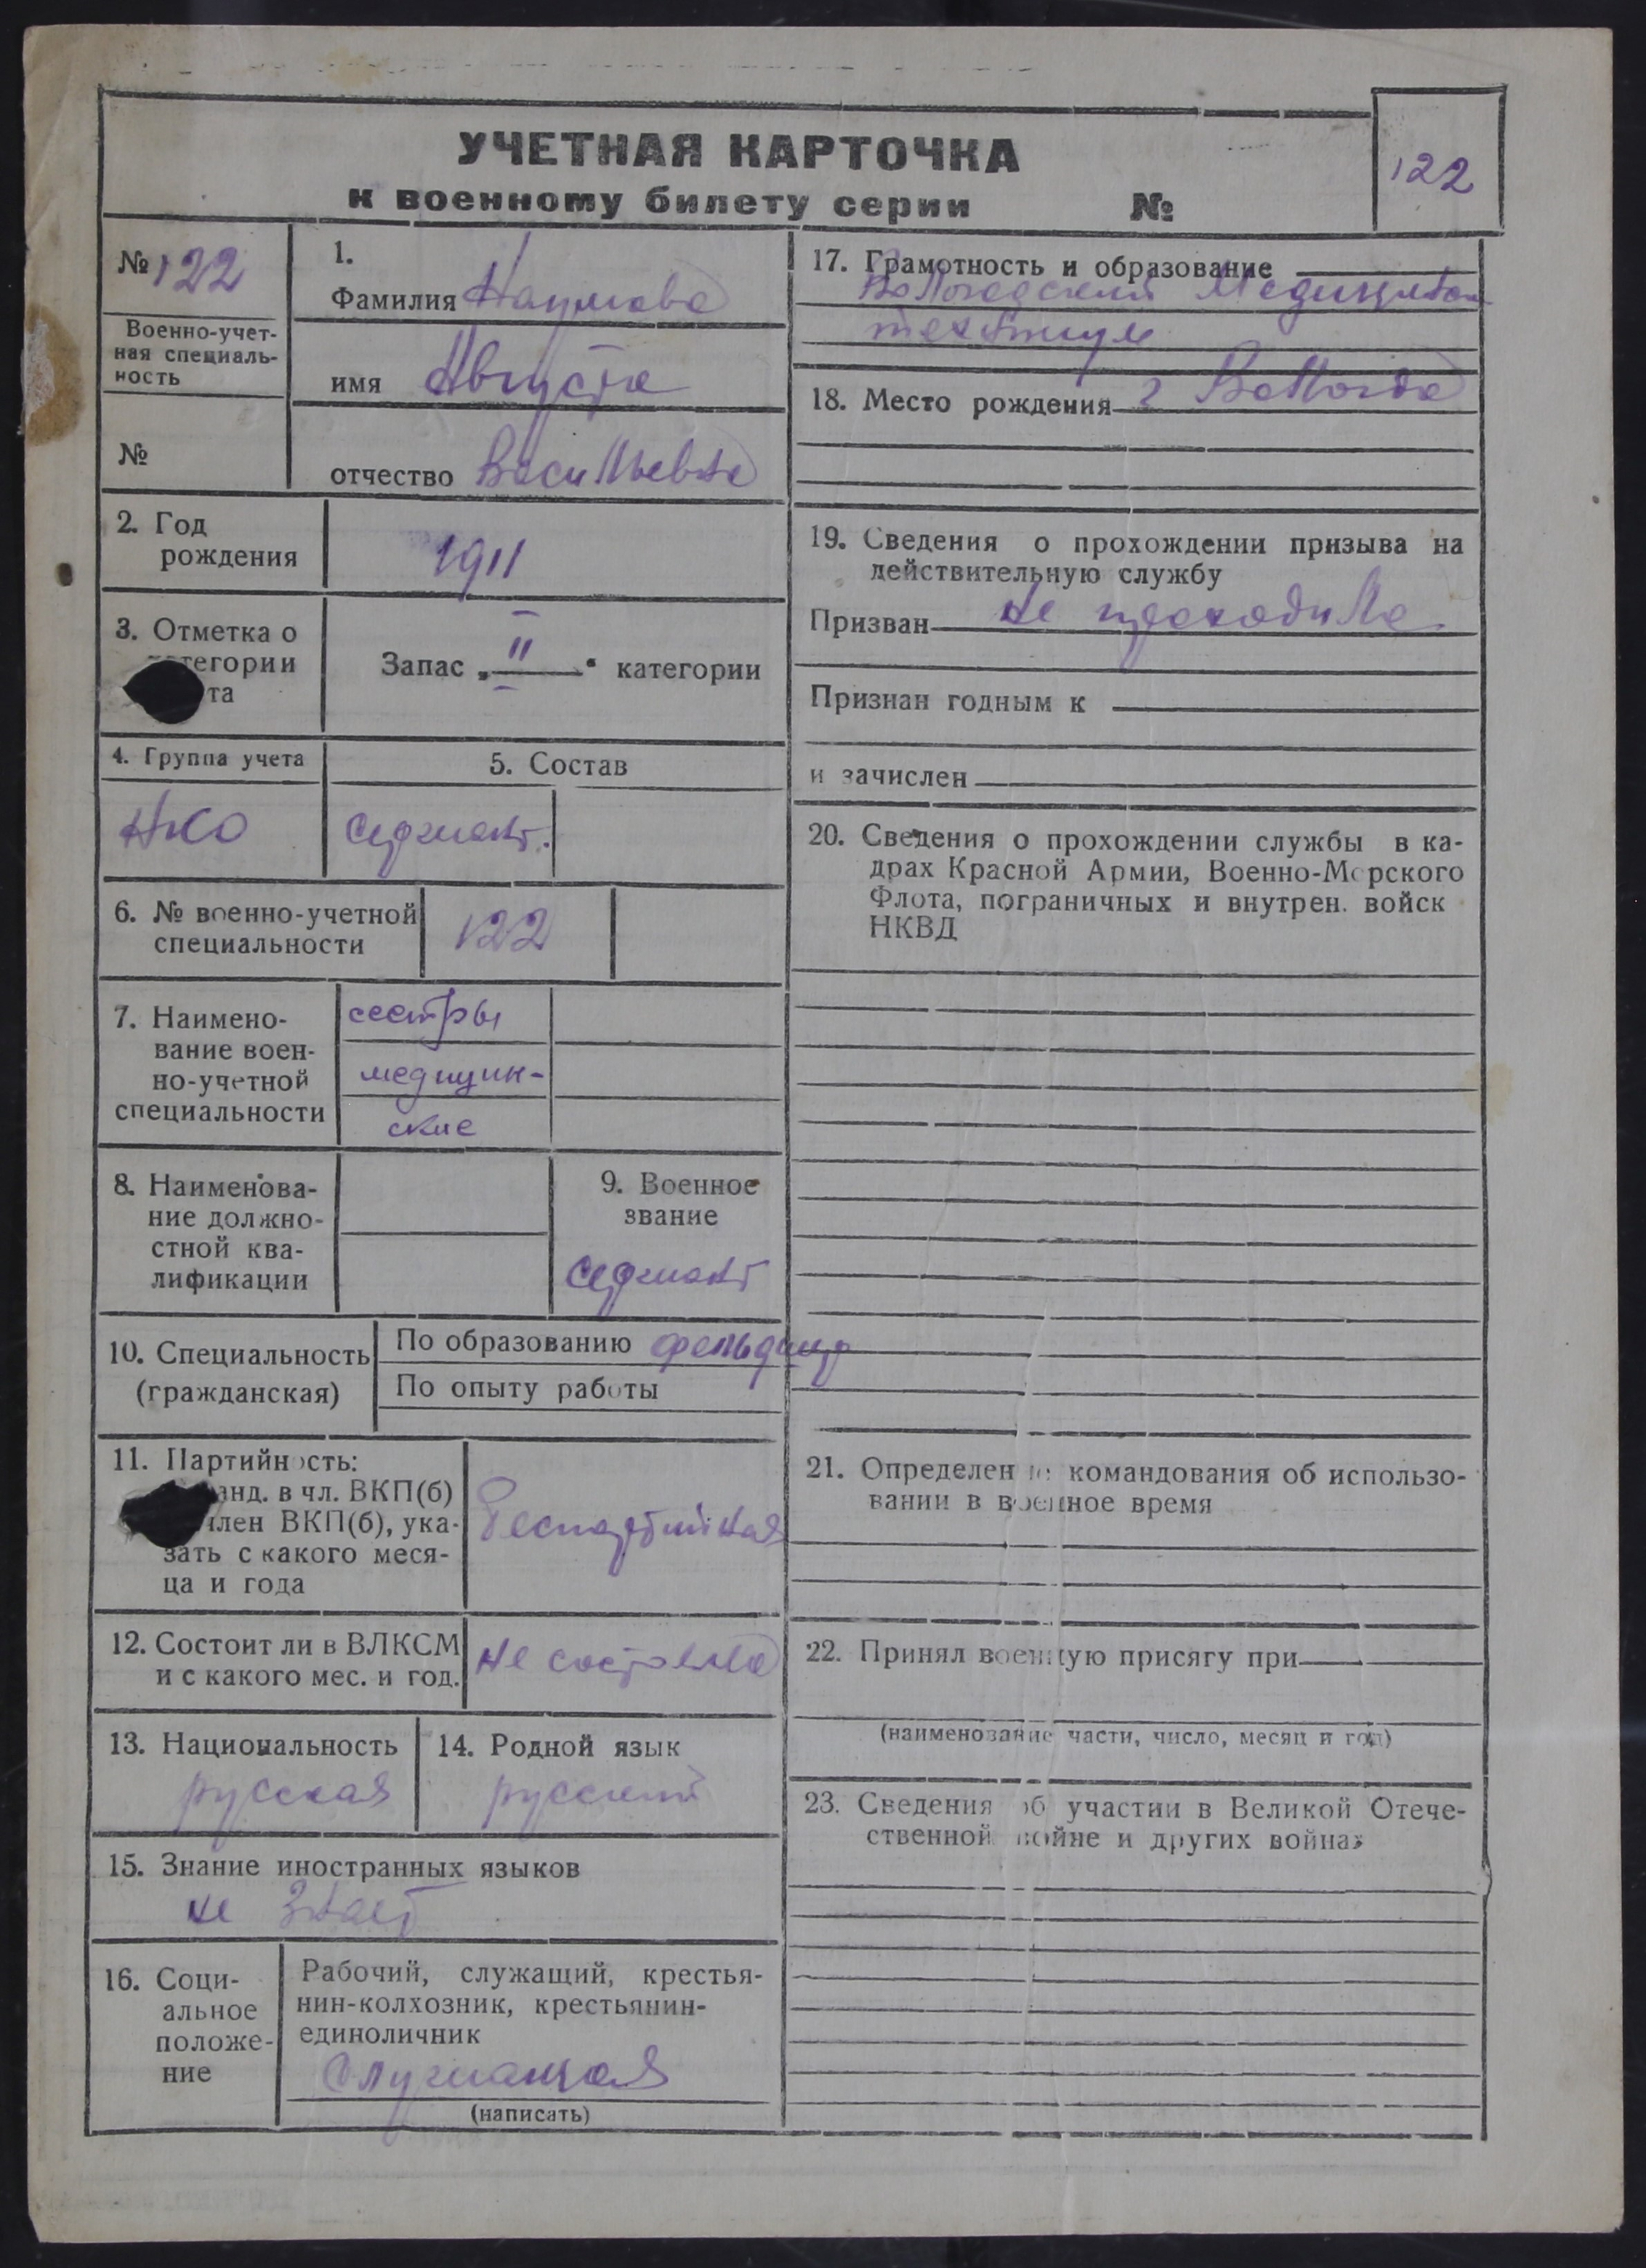 УЧЕТНАЯ КАРТОЧКА
к военному билету серии №
122
№ 122
Военно-учет-
ная специаль-
ность
№
1.
Фамилия Наумова
имя Августа
отчество Васильевна
2. Год
рождения
1911
3. Отметка о
тегории
та
Запас „II“ категории
4. Группа учета
НКО
5. Состав
сержант.
6. № военно-учетной
специальности
122
7. Наимено-
вание воен-
но-учетной
специальности
сестры
медицин-
ские
8. Наименова-
ние должно-
стной ква-
лификации
9. Военное
звание
сержант
10. Специальность
(гражданская)
По образованию фельдшер
По опыту работы
11. Партийность:
анд. в чл. ВКП(б)
член ВКП(б), ука-
зать с какого меся-
ца и года
Беспартийная
12. Состоит ли в ВЛКСМ
и с какого мес. и год.
не состояла
13. Национальность
русская
14. Родной язык
русский
15. Знание иностранных языков
не знает
16. Соци-
альное
положе-
ние
Рабочий, служащий, крестья-
нин-колхозник, крестьянин-
единоличник
Служащая
(написать)
17. Грамотность и образование
Вологодский
техникум
18. Место рождения г Вологда
19. Сведения о прохождении призыва на
действительную службу
Призван не проходила
Признан годным к
и зачислен
20. Сведения о прохождении службы в ка-
драх Красной Армии, Военно-Морского
Флота, пограничных и внутрен. войск
НКВД
21. Определение командования об использо-
вании в военное время
22. Принял военную присягу при
(наименование части, число, месяц и год)
23. Сведения об участии в Великой Отече-
ственной войне и других войнах